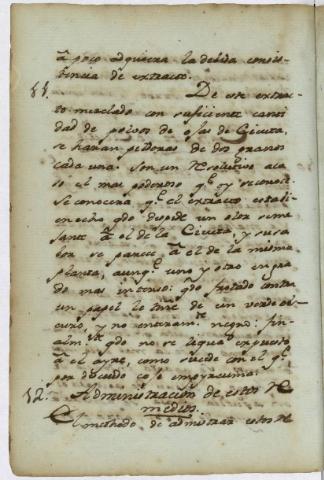 â poco adquiera la debida consis-
tencia de extracto.
11. De este extrac-
to mezclado con suficiente canti-
dad de polvos de ojas de Cicuta,
se harán píldoras de dos granos
cada una. Son un Resolutivo aca-
so el mas poderoso q.e oy se conoce.
Se conocera q.e el extracto está bi-
en echo qdo despide un olor seme-
jante â el de la Cicuta, y su sa-
bor se parece â el de la misma
planta, aunq.e uno y otro en gra-
do mas intenso: qdo frotado contra
un papel lo tiñe de un verde os-
curo, y no enteram.te negro: fin-
alm.te qdo no se seca expuesto
â el ayre, como sucede con el q.e
por descuido es empyreuma:
12. Administracion de estos Re
medios.
El methodo de administrar estos Re